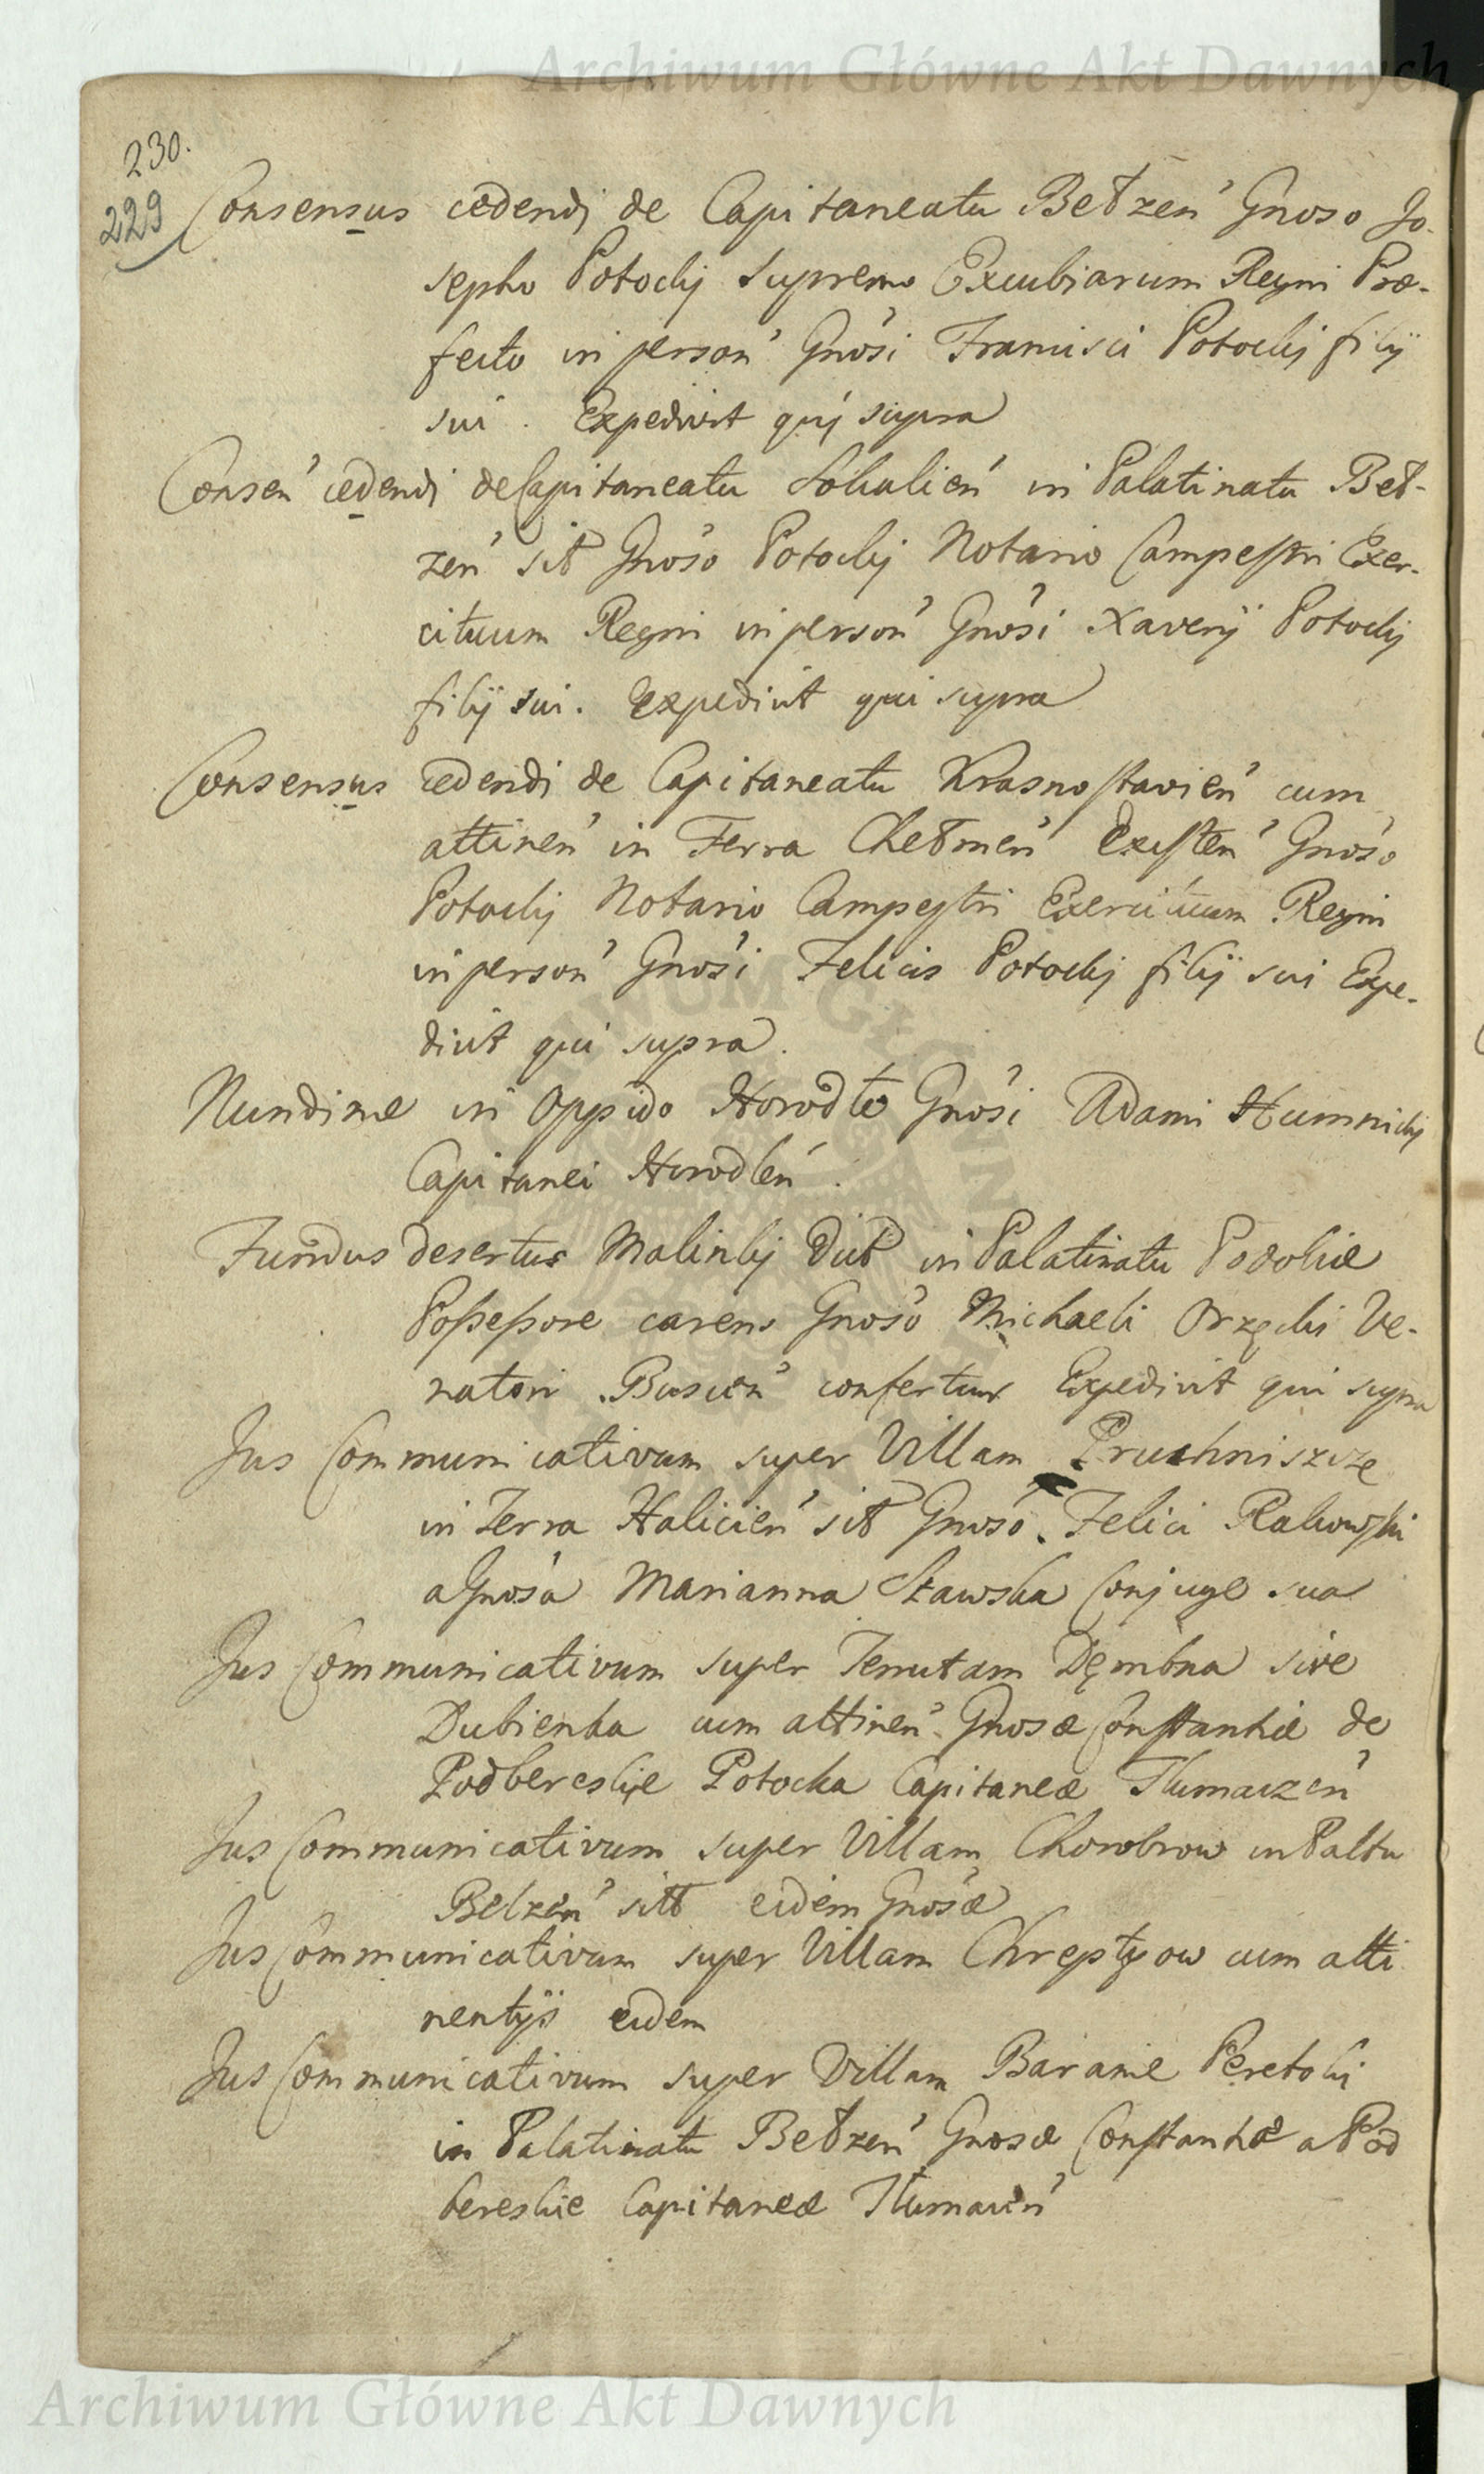 Archiwum Główne Akt Dawnych
230.
229
Consensus cedendj de Capitaneatu Bełzeń Gnoso Jo-
sepho Potockj Supremo Excubiarum Regni Præ-
fecto in person̄ Gnosi Francisci Potockj filij
sui. Expedivit quj supra
Conseń cedendj de Capitaneatu Sokalień in Palatinatu Beł-
zeń sit Gnoso Potockj Notario Campestri Exer-
cituum Regni in persoń Gnosi Xaverij Potockj
filij sui. Expedivit qui supra
Consensus cedendi de Capitaneatu Krasnostavień cum
attineń in Terra Chełmeń Existeń Gnoso
Potockj Notario Campestri Exercituum Regni
in persoń Gnosi Felicis Potockj filij sui Expe-
divit qui supra.
Nundinæ in Oppido Horodło Gnosi Adami Humnickj
Capitanei Horodleń.
Fundus desertus Malinkj Dub in Palatinatu Podoliæ
Possessore carens Gnoso Michaeli Orzęcki Ve-
natori Buscen confertur Expedivit qui supra
Jus Communicativum super Villam Pruchniszcze
in Terra Halicień sit Gnoso Felici Rakowski
a Gnosa Marianna Stawska Conjuge sua
Jus Communicativum super Tenutam Dęmbna sive
Dubienka cum attineń Gnosæ Constantiæ de
Podbereskie Potocka Capitaneæ Tlumaczeń
Jus Communicativum super Villam Chorobrow in Paltu
Belzeń sitt eidem Gnosæ
Jus Communicativum super Villam Chreptyow cum atti
nentijs eidem
Jus Communicativum super Villam Baranie Peretoki
in Palatinatu Bełzeń Gnosæ Constantiæ a Pod
bereskie Capitaneæ Tłumacń
Archiwum Główne Akt Dawnych